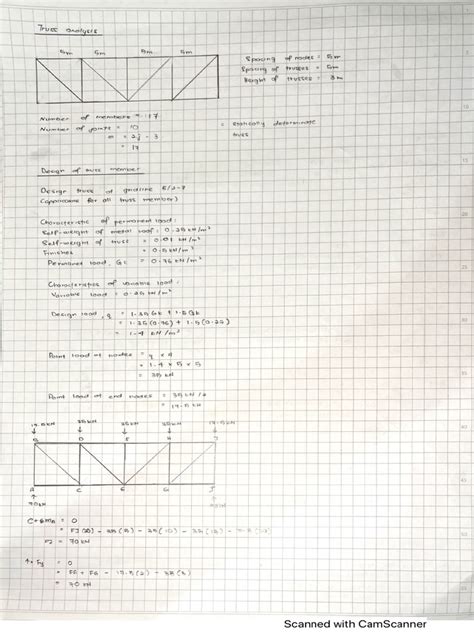 Truss analysis
5m 5m 5m 5m
Spacing of nodes = 5m
Spacing of trusses = 5m
Height of trusses = 3m
Number of members = 17
Number of joints = 10
m = 2j - 3
= 17
= statically determinate
truss
Design of truss member
Design truss at gridline
for all truss member)
Characteristic of permanent load:
Self-weight of metal roof: 0.25 kN/m²
Self-weight of truss = 0.01 kN/m²
Finishes = 0.5 kN/m²
Permanent load, Gk = 0.76 kN/m²
Characteristics of variable load:
Variable load = 0.25 kN/m²
Design load, q = 1.35 Gk + 1.5 Qk
= 1.35 (0.76) + 1.5 (0.25)
= 1.4 kN/m²
Point load at nodes
= 1.4 x 5 x 5
= 35 kN
Point load at end nodes = 35 kN / 2
= 17.5 kN
17.5kN 35kN 35kN 35kN
B D F H
A C E G
70kN
= 0
= 70 kN
↑+ Fy = 0
= 70 kN
Scanned with CamScanner